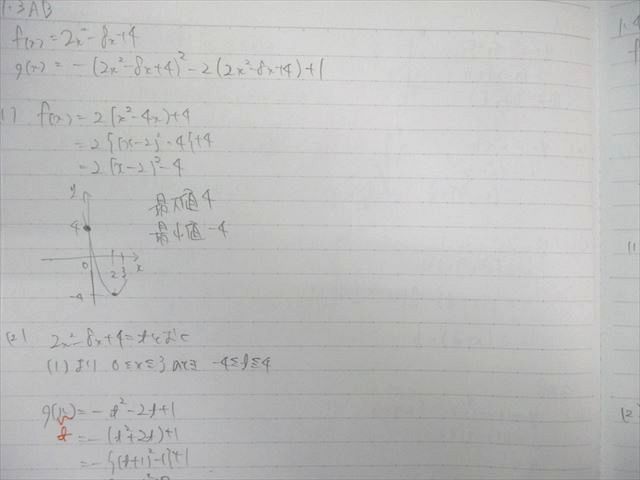 1.3 AB
f(x) = 2x² - 8x + 4
g(x) = -(2x² - 8x + 4)² - 2(2x² - 8x + 4) + 1
(1) f(x) = 2(x² - 4x) + 4
= 2{(x-2)² - 4} + 4
= 2(x-2)² - 4
y
最大値 4
4
最小値 -4
0 2 3 x
-4
(2) 2x² - 8x + 4 = t とおくと
(1)より 0≦x≦3 のとき -4≦t≦4
g(x) = -t² - 2t + 1
t = -(t² + 2t) + 1
= -{(t+1)² - 1} + 1